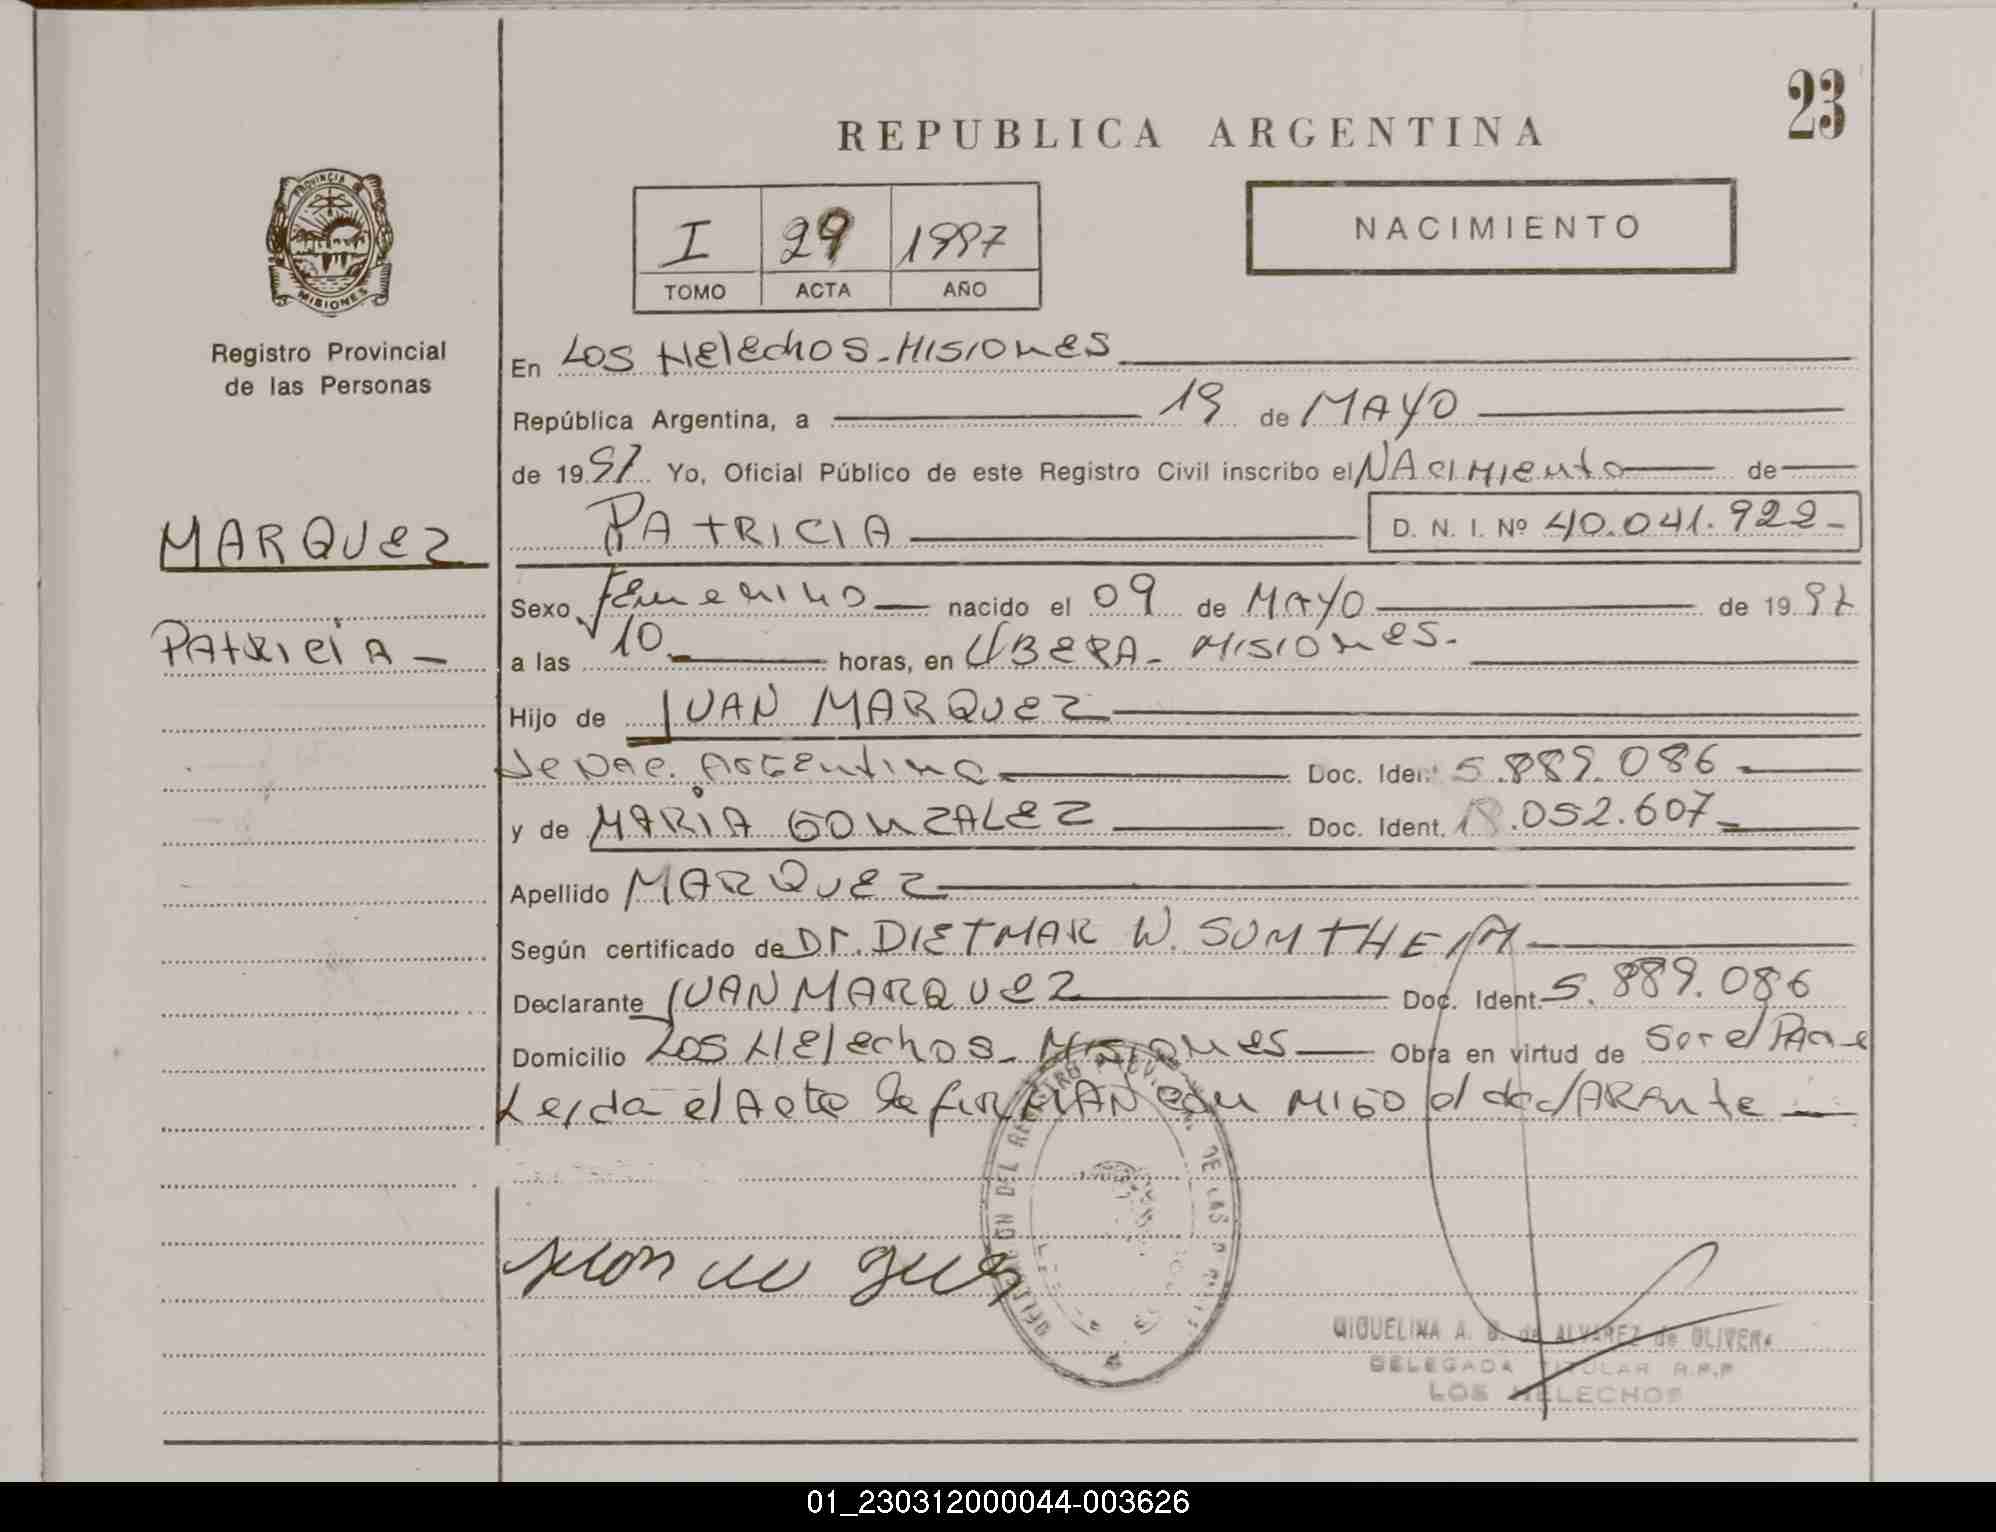 23
REPUBLICA ARGENTINA
PROVINCIA
MISIONES
Registro Provincial
de las Personas
I 29 1997
TOMO ACTA AÑO
NACIMIENTO
En Los Helechos-Misiones
República Argentina, a 19 de MAYO
de 1997 Yo, Oficial Público de este Registro Civil inscribo el NAciMiento de
MARQUEZ
PATRICIA D. N. I. Nº 40.041.922-
Sexo Femenino nacido el 09 de MAYO de 1997
PAtRiciA
a las 10 horas, en OBERA- MISIONES.
Hijo de JUAN MARQUEZ
de Nac. Argentina Doc. Ident 5.889.086
y de MARiA GONZALEZ Doc. Ident. 18.052.607
Apellido MARQUEZ
Según certificado de Dr. DIETMAR W. SOMTHEIM
Declarante JUAN MARQUEZ Doc. Ident. 5.889.086
Domicilio Los Helechos- Misiones Obra en virtud de Ser el PAdre
Leida el Acta la firMAN con MIGO el declARAnte
DELEGACION DEL REGISTRO PROVINCIAL DE LAS
MIQUELINA A. de ALVAREZ de OLIVERA
DELEGADA TITULAR R.P.P
LOS HELECHOS
01_230312000044-003626